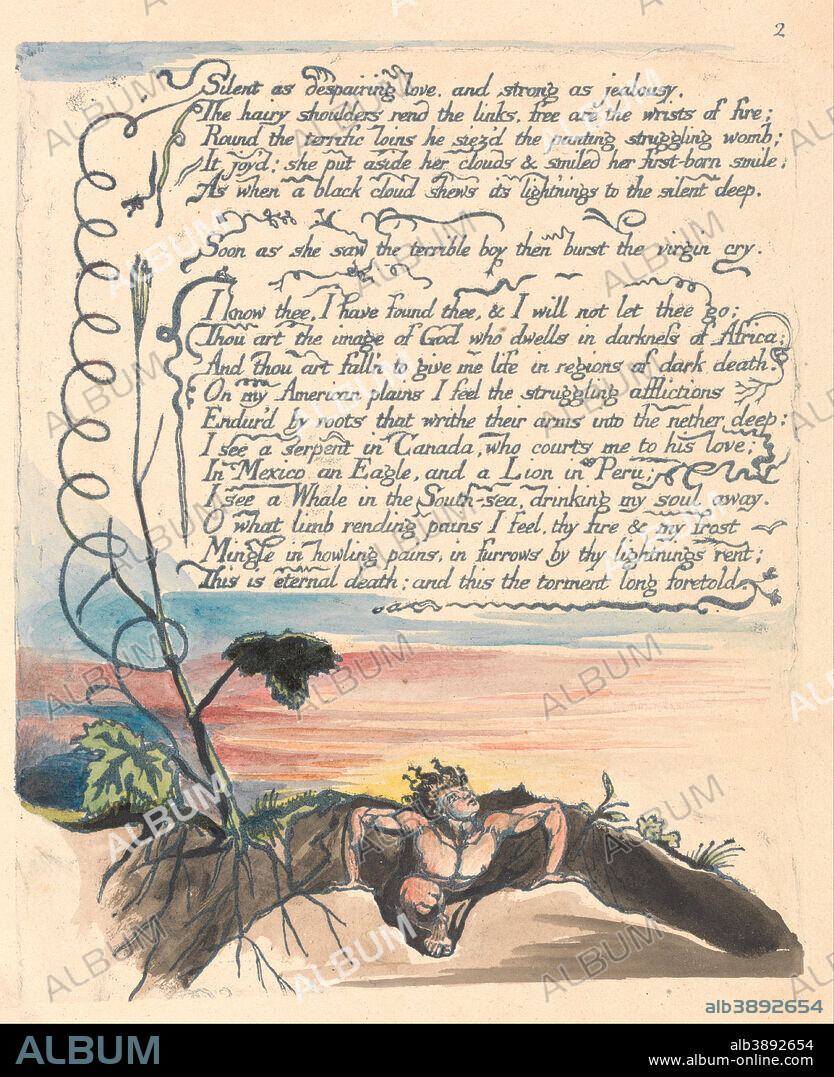 2
Silent as despairing love, and strong as jealousy,
The hairy shoulders rend the links, free are the wrists of fire;
Round the terrific loins he siez'd the panting struggling womb;
It joy'd: she put aside her clouds & smiled her first-born smile;
As when a black cloud shews its lightnings to the silent deep.
Soon as she saw the terrible boy then burst the virgin cry.
I know thee, I have found thee, & I will not let thee go;
Thou art the image of God who dwells in darkness of Africa;
And thou art fall'n to give me life in regions of dark death.
On my American plains I feel the struggling afflictions
Endur'd by roots that writhe their arms into the nether deep:
I see a serpent in Canada, who courts me to his love;
In Mexico an Eagle, and a Lion in Peru;
I see a Whale in the South-sea, drinking my soul away.
O what limb rending pains I feel, thy fire & my frost
Mingle in howling pains, in furrows by thy lightnings rent;
This is eternal death; and this the torment long foretold.
ALBUM
alb3892654
ALBUM
alb3892654
www.album-online.com